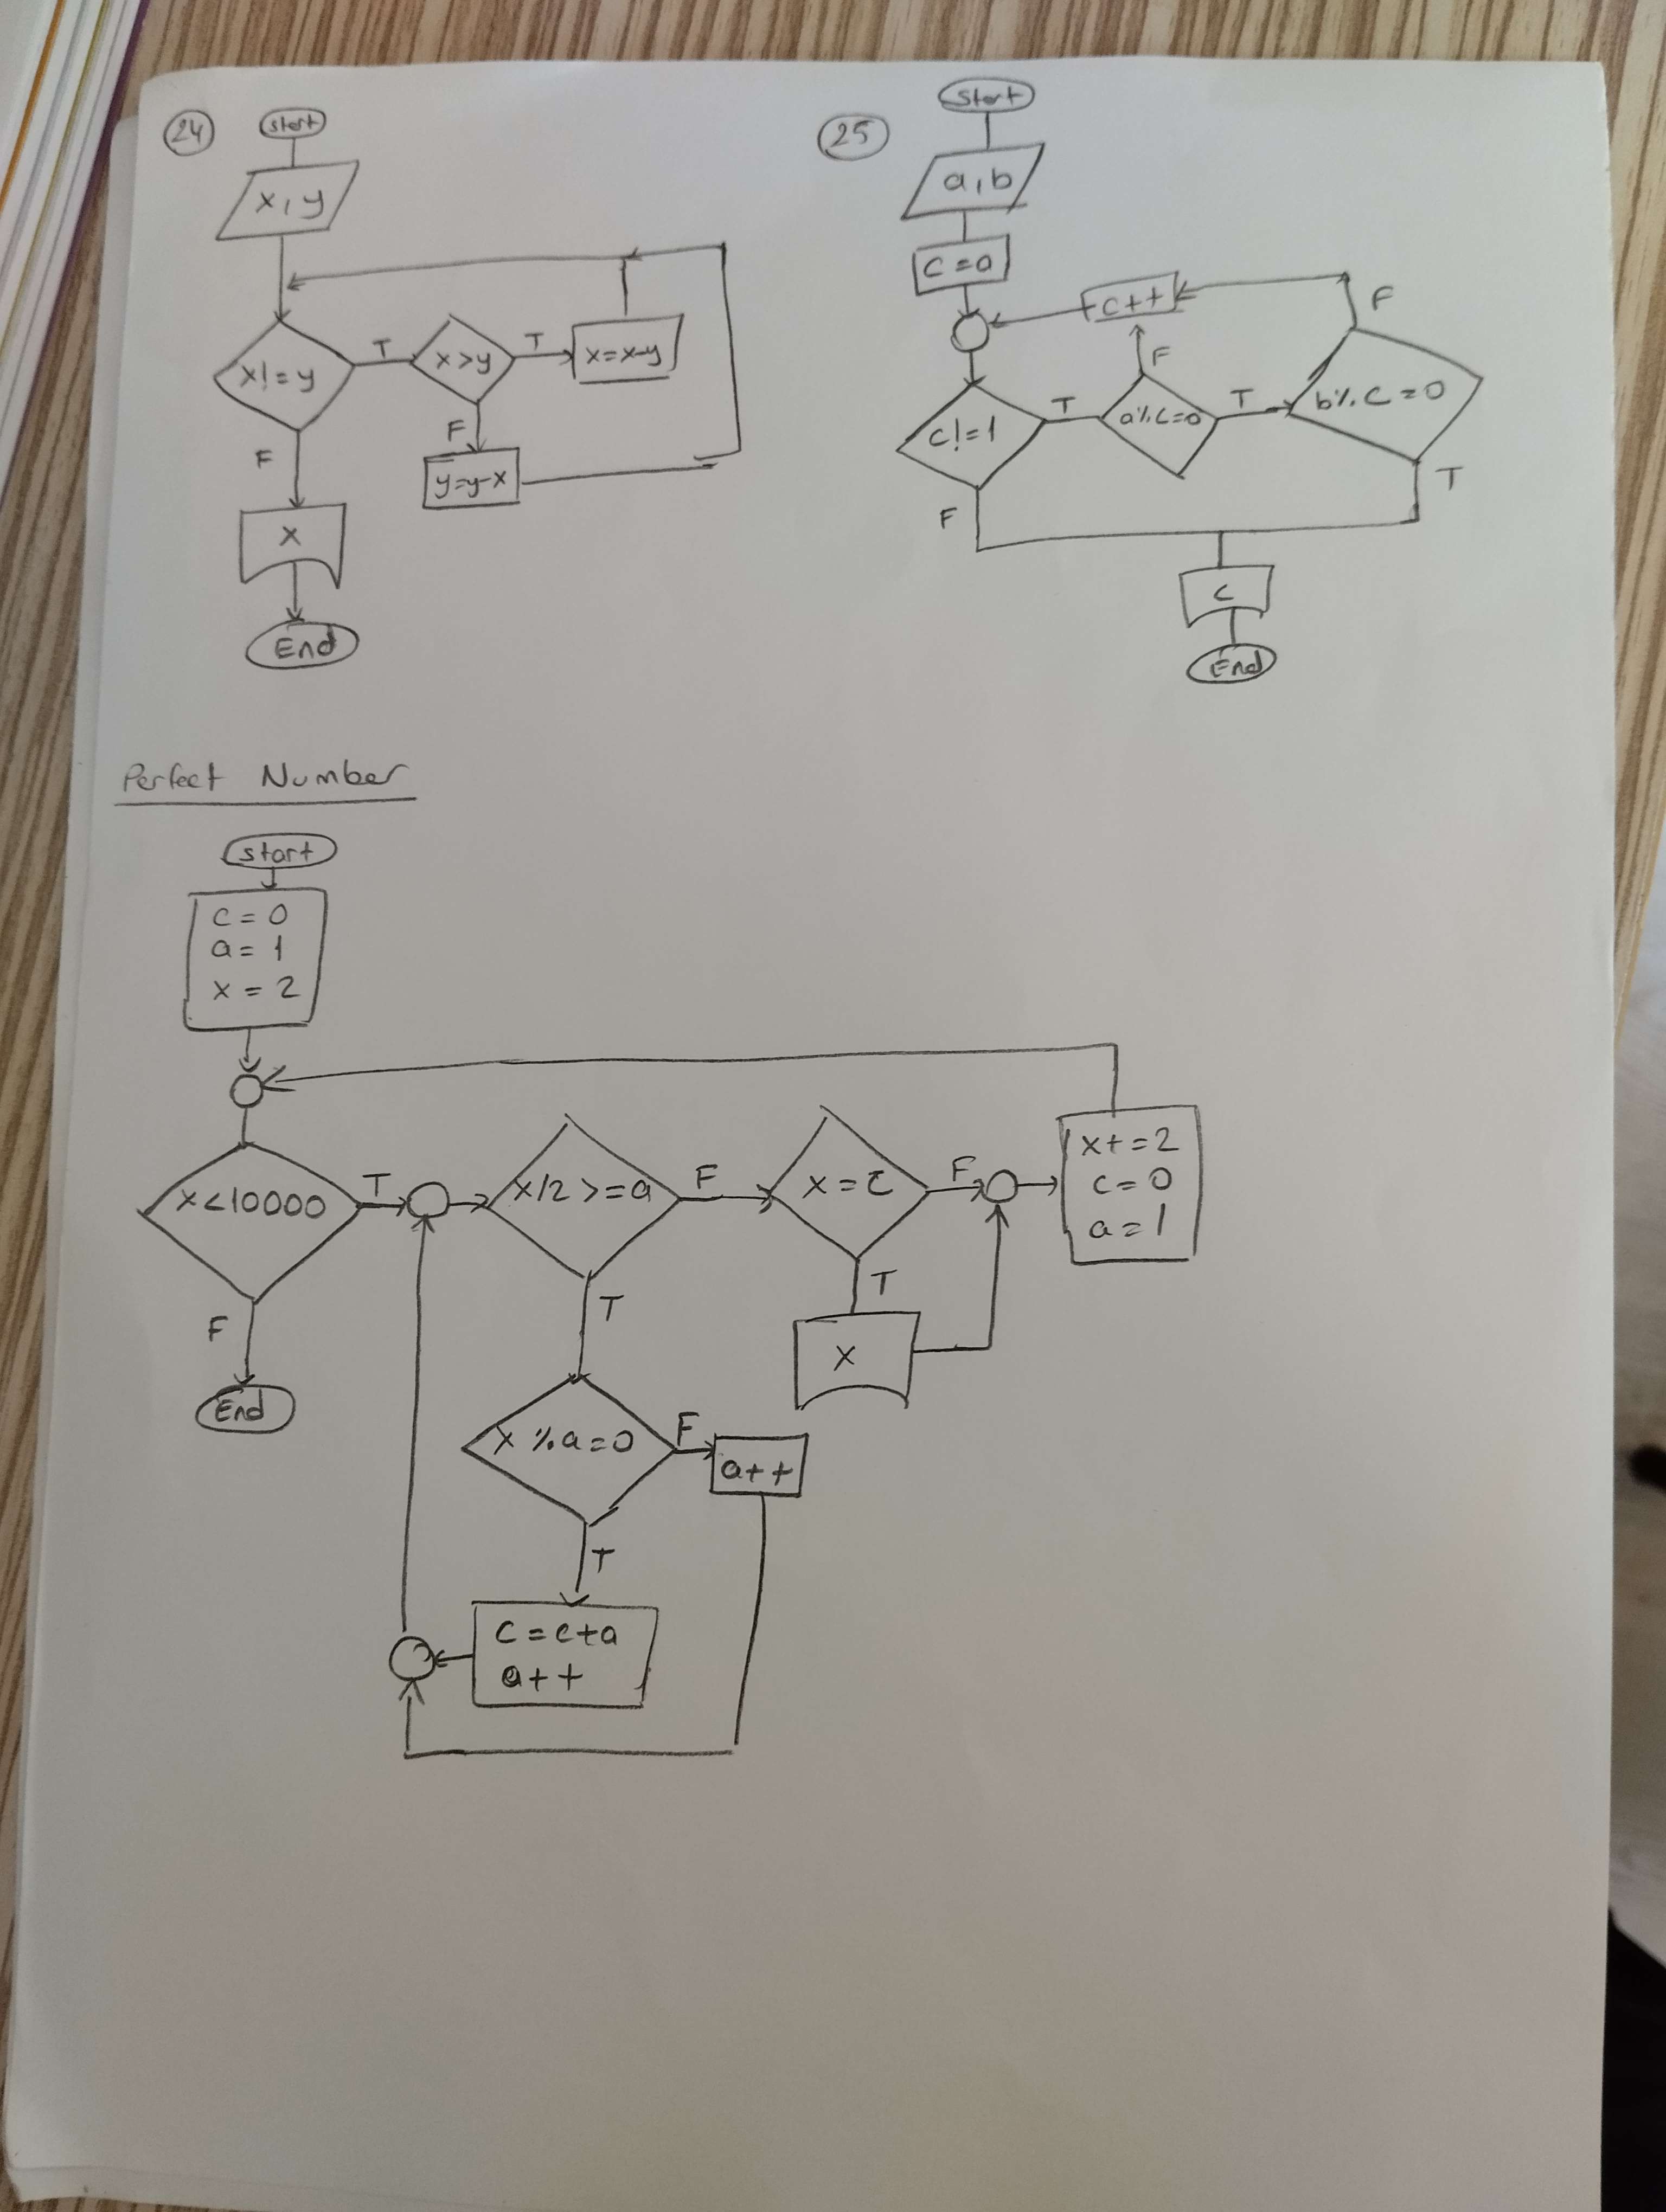 24
start
x, y
x! = y
T
x > y
T
x = x-y
F
y=y-x
F
x
End
25
Start
a, b
c = a
c++
F
c! = 1
T
a%c=0
F
T
b%c = 0
T
F
c
End
Perfect Number
start
c = 0
a = 1
x = 2
x < 10000
T
x/2 >= a
F
x = c
F
x+ = 2
c = 0
a = 1
T
x
F
End
T
x %a = 0
F
a++
T
c = c+a
a++